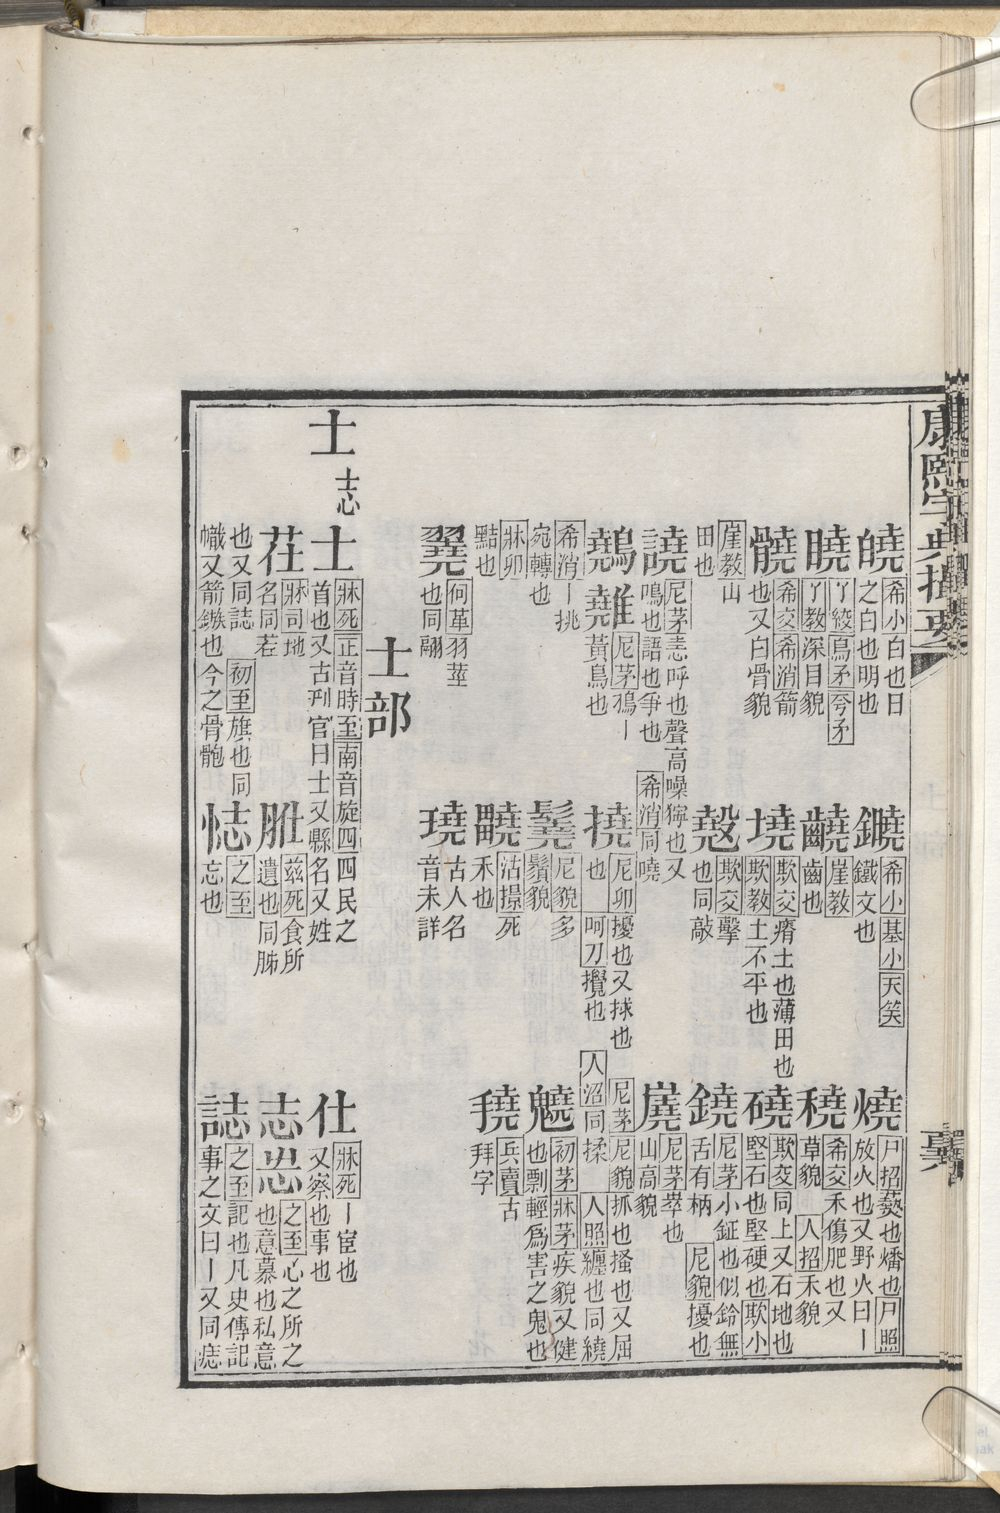 康熙字典撮要
皢 希小白也日之白也明也
鐃 希小基小天笑鐵文也
燒 尸招爇也燔也尸照放火也又野火曰丨
曉 了絞鳥矛窅矛了教深目貌
齩 崖教齒也
穘 希交禾傷肥也又草貌人招禾貌
髐 希交希消箭也又白骨貌
墝 欺交瘠土也薄田也欺教土不平也
磽 欺交同上又石地也堅石也堅硬也欺小
崖教山田也
欺交擊也同敲
鐃 尼茅小鉦也似鈴無舌有柄尼貌擾也
譊 尼茅恚呼也聲高噪獰也又鳴也語也爭也希消同嘵
嶤 尼茅崒也山高貌
尼茅鴉丨黃鳥也
撓 尼卯擾也又捄也尼茅尼貌抓也搔也又屈也呵刀攪也人沼同揉人照纏也同繞
希消丨挑宛轉也
尼貌多鬚貌
魈 初茅牀茅疾貌又健也剽輕爲害之鬼也
牀卯黠也
沽㬎死禾也
兵賣古拜字
翹 何革羽莖也同翮
古人名音未詳
士部
士 志
士 牀死正音時至南音旋四四民之首也又古刑官曰士又縣名又姓
仕 牀死丨宦也又察也事也
茌 牀司地名同茬
脽 茲死食所遺也同胏
志 㤅 之至心之所之也意慕也私意也又同誌初至旗也同幟又箭鏃也今之骨骲
㤴 之至忘也
誌 之至記也凡史傳記事之文曰丨又同痣